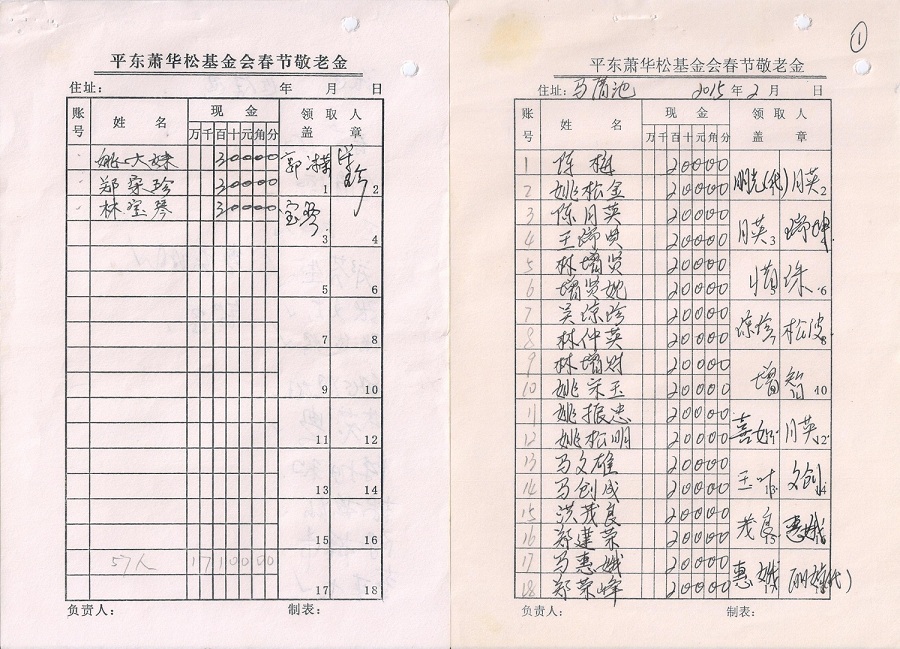 平东萧华松基金会春节敬老金
住址： 年 月 日
账号 姓名 现金 领取人盖章
万千百十元角分
姚大妹 30000 1 2
郑荣珍 30000
林宝琴 30000 宝琴 3 4
5 6
7 8
9 10
11 12
13 14
15 16
57人 1710000 17 18
负责人： 制表：
①
平东萧华松基金会春节敬老金
住址：马清池 2015年2月 日
账号 姓名 现金 领取人盖章
万千百十元角分
1 陈梅 20000
2 姚松金 20000 (代) 月英 2
3 陈月英 20000
4 王瑞贤 20000 月英 3 瑞坤
5 林增贤 20000
6 增贤妣 20000 惜珠 6
7 吴琼珍 20000
8 林仲英 20000 琼珍 松波 8
9 林增财 20000
10 姚荣玉 20000 增智 10
11 姚报忠 20000
12 姚松明 20000 喜 月英 12
13 马文雄 20000
14 马创成 20000 文创 14
15 洪茂良 20000
16 郑建荣 20000 茂良 惠娥
17 马惠娥 20000
18 郑荣峰 20000 惠娥 (代)
负责人： 制表：